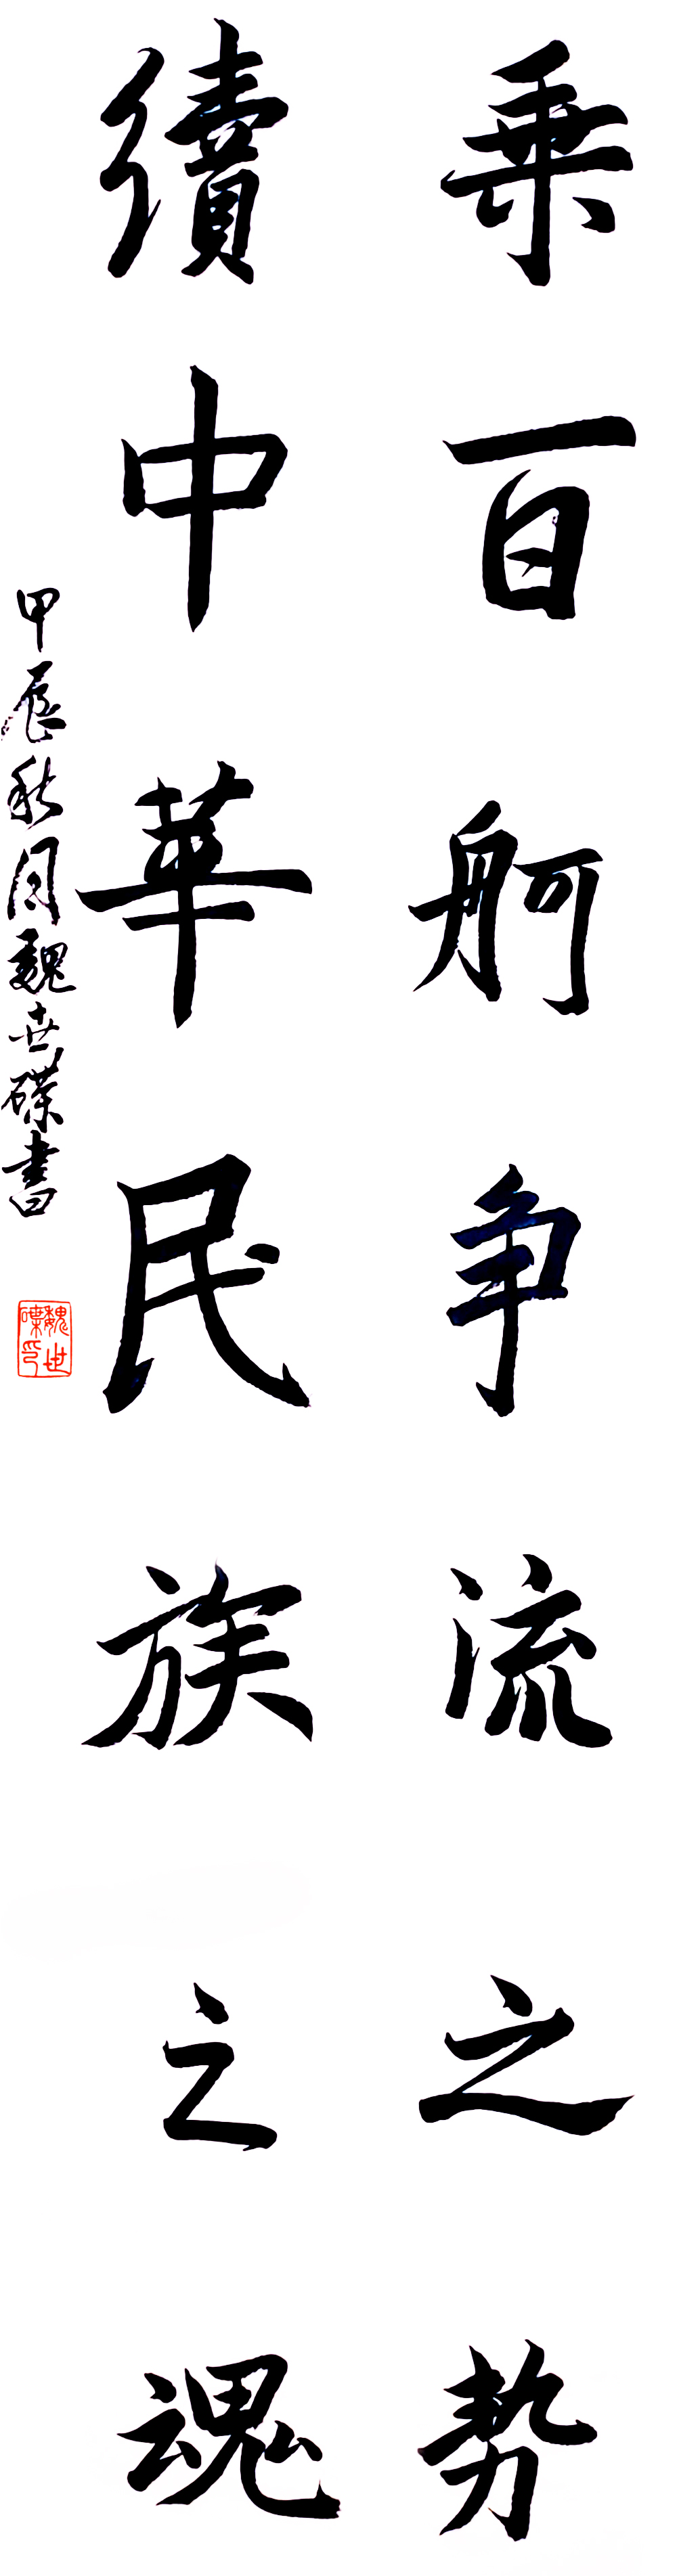 乗百舸争流之势
續中華民族之魂
甲辰秋月魏世磔書
魏世磔印